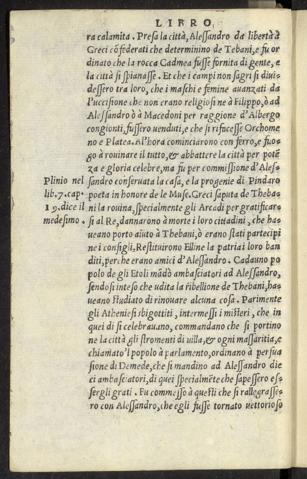 LIBRO
ra calamita. Presa la città, Alessandro da libertà à
Greci cõfederati che determinino de Tebani, e fu or
dinato che la rocca Cadmea fusse fornita di gente, e
la città si spianasse. Et che i campi non sagri si diui-
dessero tra loro, che i maschi e femine auanzati da
l'uccisione che non erano religiosi ne à Filippo, ò ad
Alessandro ò à Macedoni per raggione d'Albergo
congionti, fussero uenduti, e che si rifacesse Orchome
no e Platea. Al'hora cominciarono con ferro, e fuo-
go à rouinare il tutto, & abbattere la città per potẽ
za e gloria celebre, ma fu per commissione d'Ales-
sandro conseruata la casa, e la progenie di Pindaro
poeta in honore de le Muse. Greci saputa de Theba-
ni la rouina, spetialmente gli Arcadi per gratificare
si al Re, dannarono à morte i loro cittadini, che hau
ueano porto aiuto à Thebani, ò erano stati partecipi
ne i consigli, Restituirono Elline la patria i loro ban
diti, perche erano amici d'Alessandro. Cadauno po
polo de gli Etoli mãdò ambasciatori ad Alessandro,
sendosi inteso che udita la ribellione de Thebani, has
ueano studiato di rinouare alcuna cosa. Parimente
gli Atheniesi sbigottiti, intermessi i misteri, che in
quei di si celebrauano, commandano che si portino
ne la città gli stromenti di uilla, & ogni massaritia, e
chiamato'l popolo à parlamento, ordinano à persua
sione di Demede, che si mandino ad Alessandro die
ci ambasciatori, di quei spetialmẽte che sapessero es-
sergli grati. Fu commesso à questi che si rallegrasse-
ro con Alessandro, che egli fusse tornato uettorioso
Plinio nel
lib. 7. cap.
19. dice il
medesimo.